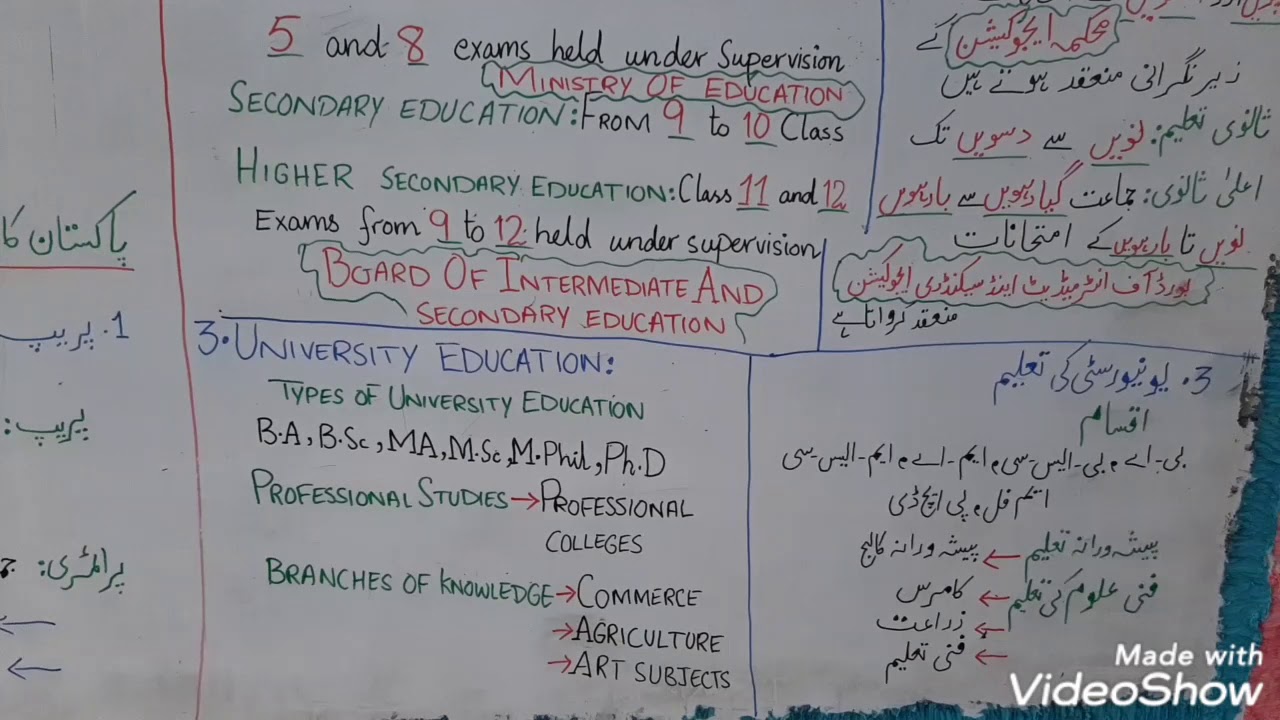 5 and 8 exams held under Supervision
MINISTRY OF EDUCATION
SECONDARY EDUCATION: FROM 9 to 10 Class
HIGHER SECONDARY EDUCATION: Class 11 and 12
Exams from 9 to 12 held under supervision
BOARD OF INTERMEDIATE AND
SECONDARY EDUCATION
3. UNIVERSITY EDUCATION:
TYPES OF UNIVERSITY EDUCATION
B.A, B.Sc, MA, M.Sc, M.Phil, Ph.D
PROFESSIONAL STUDIES → PROFESSIONAL
COLLEGES
BRANCHES OF KNOWLEDGE → COMMERCE
→ AGRICULTURE
→ ART SUBJECTS
محکمہ ایجوکیشن کے
زیر نگرانی منعقد ہوتے ہیں
ثانوی تعلیم: نویں سے دسویں تک
اعلیٰ ثانوی: جماعت گیارہویں سے بارہویں
نویں تا بارہویں کے امتحانات
بورڈ آف انٹرمیڈیٹ اینڈ سیکنڈری ایجوکیشن
منعقد کرواتا ہے
3. یونیورسٹی کی تعلیم
اقسام
بی-اے، بی-ایس-سی، ایم-اے، ایم-ایس-سی
ایم فل، پی ایچ ڈی
پیشہ ورانہ تعلیم ← پیشہ ورانہ کالج
فنی علوم کی تعلیم ← کامرس
← زراعت
← فنی تعلیم
پاکستان کا
1. پریپ
پریپ:
پرائمری:
Made with
VideoShow